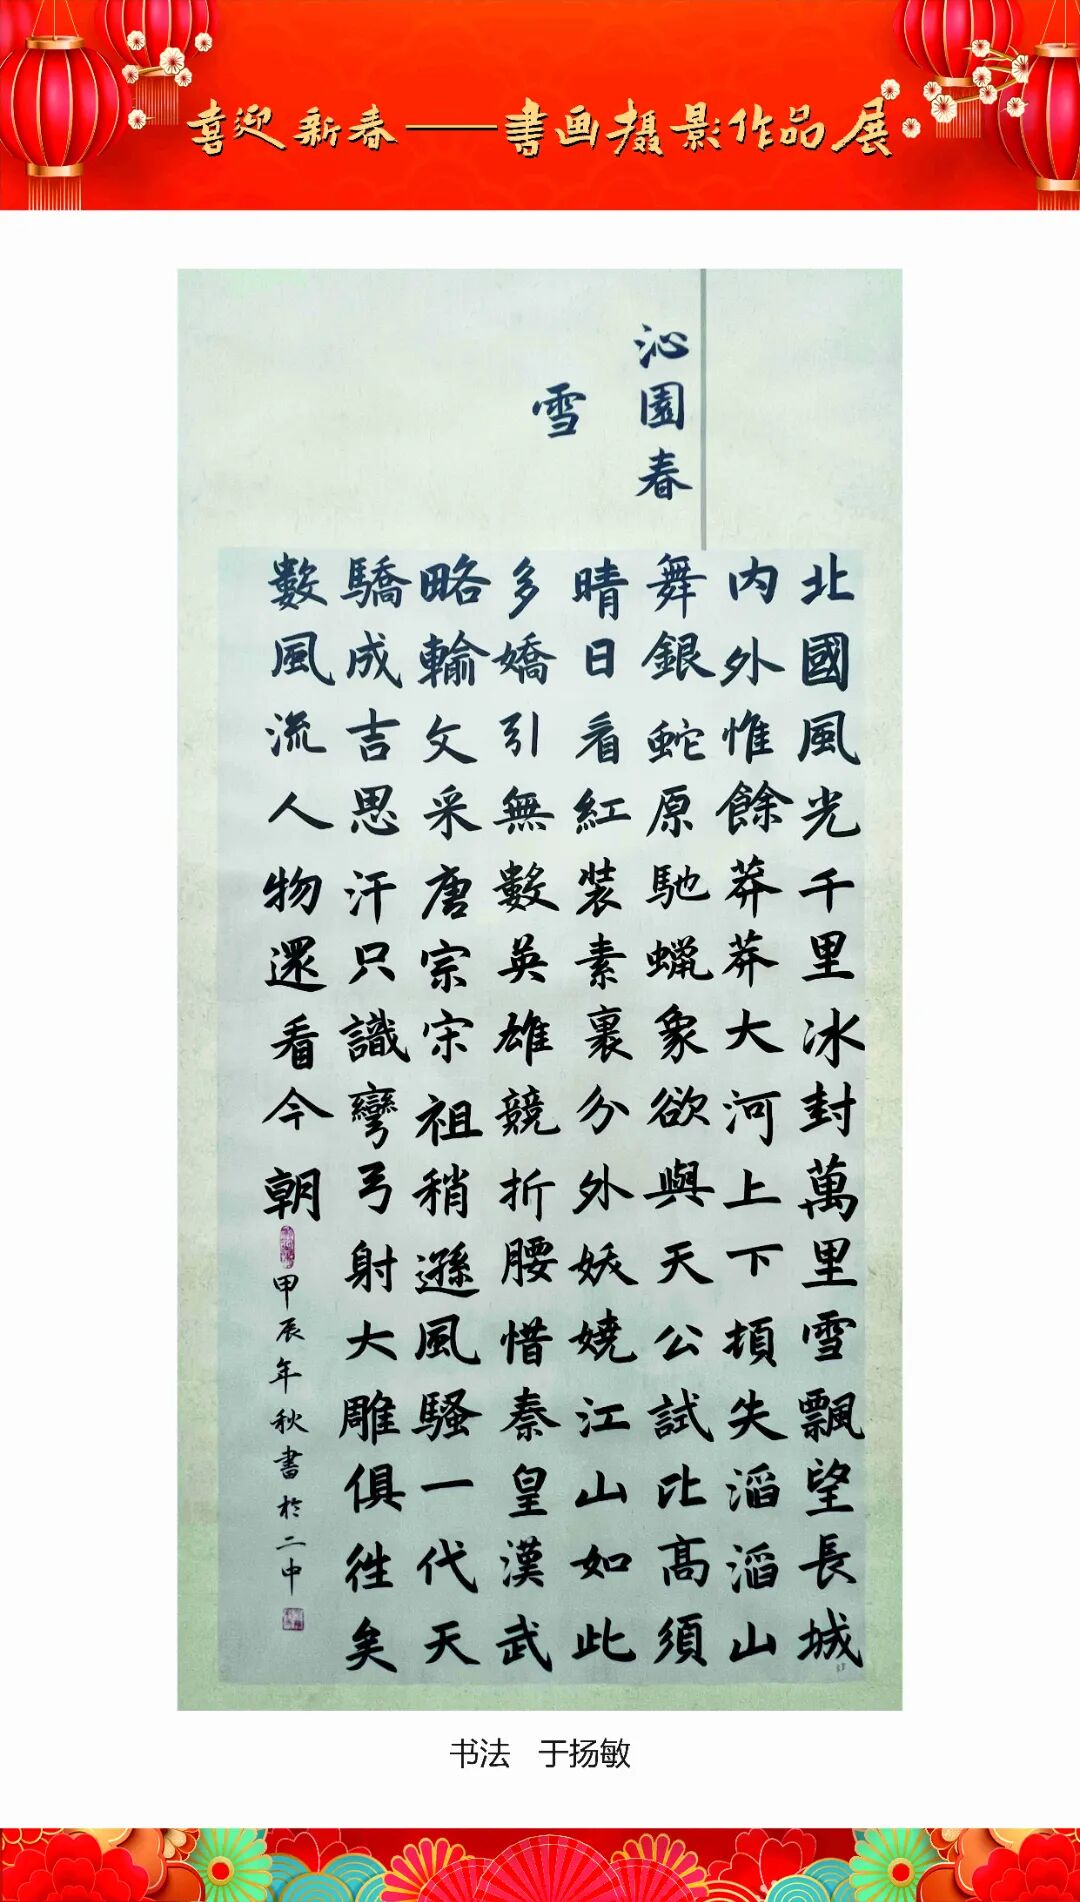 喜迎新春——书画摄影作品展
沁園春
雪
北國風光千里冰封萬里雪飄望長城
内外惟餘莽莽大河上下頓失滔滔山
舞銀蛇原馳蠟象欲與天公試比高須
晴日看紅装素裹分外妖嬈江山如此
多嬌引無數英雄競折腰惜秦皇漢武
略輸文采唐宗宋祖稍遜風騷一代天
驕成吉思汗只識彎弓射大雕俱往矣
數風流人物還看今朝
甲辰年秋書於二中
书法 于扬敏